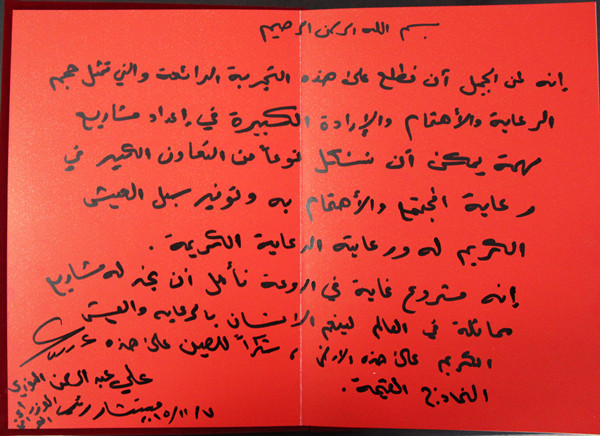 بسم الله الرحمن الرحيم
إنه لمن الجميل أن نطلع على هذه التجربة الرائعة والتي تمثل حجم
الرعاية والأهتمام والإرادة الكبيرة في إعداد مشاريع
مهمة يمكن أن تشكل نوعاً من التعاون الكبير في
رعاية المجتمع والأهتمام به وتوفير سبل العيش
الكريم له ورعايته الرعاية الكريمة .
إنه مشروع غاية في الروعة نأمل أن نجد له مشاريع
مماثلة في العالم لينعم الانسان بالرعايه والعيش
الكريم على هذه الارض ، شكراً للصين على هذه
النماذج القيمة .
علي عبد الرحمن
مستشار رئيس الوزراء
١٥/١١/٧